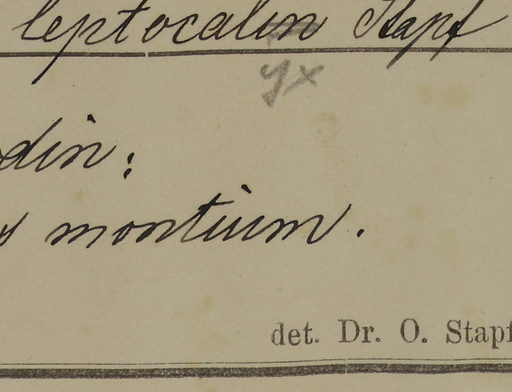 leptocalin Stapf
yx
din;
montium.
det. Dr. O. Stapf